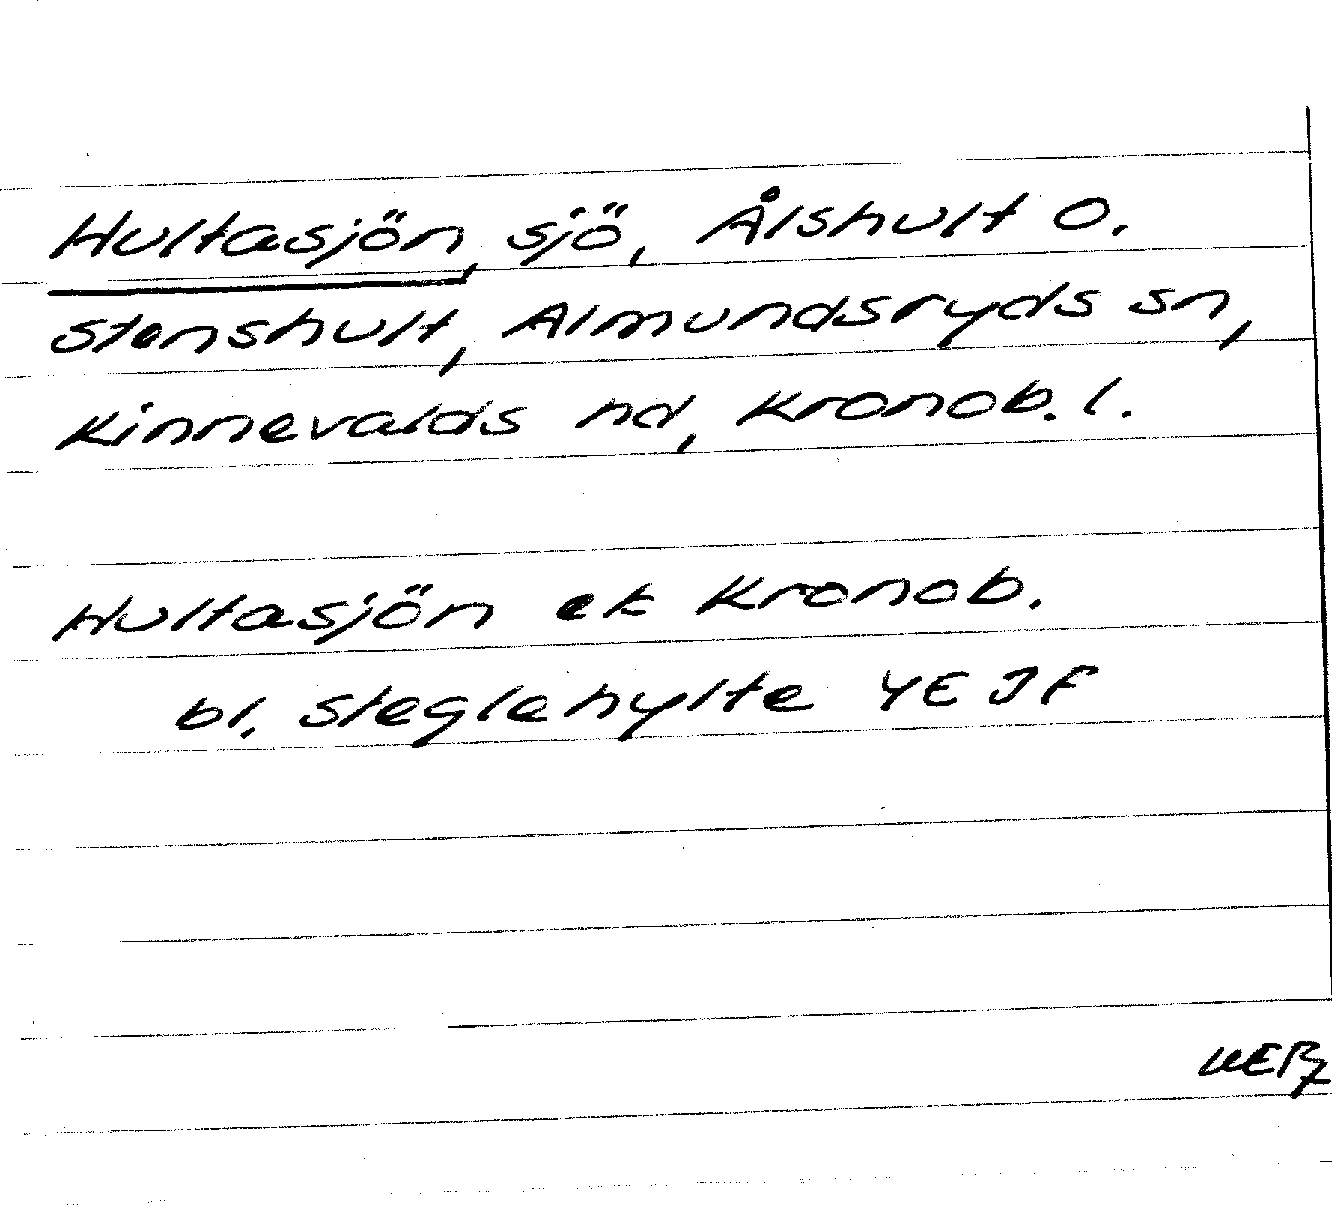 Hultasjön, sjö, Ålshult O.
Stenshult, Almundsryds sn,
Kinnevalds hd, Kronob. l.
Hultasjön ek Kronob.
bl. Steglehylte 4E JF